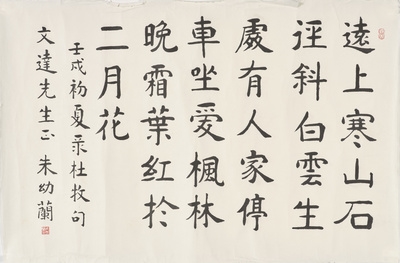 遠上寒山石
徑斜白雲生
處有人家停
車坐爱楓林
晚霜葉紅於
二月花
壬戌初夏录杜牧句
文達先生正 朱幼蘭